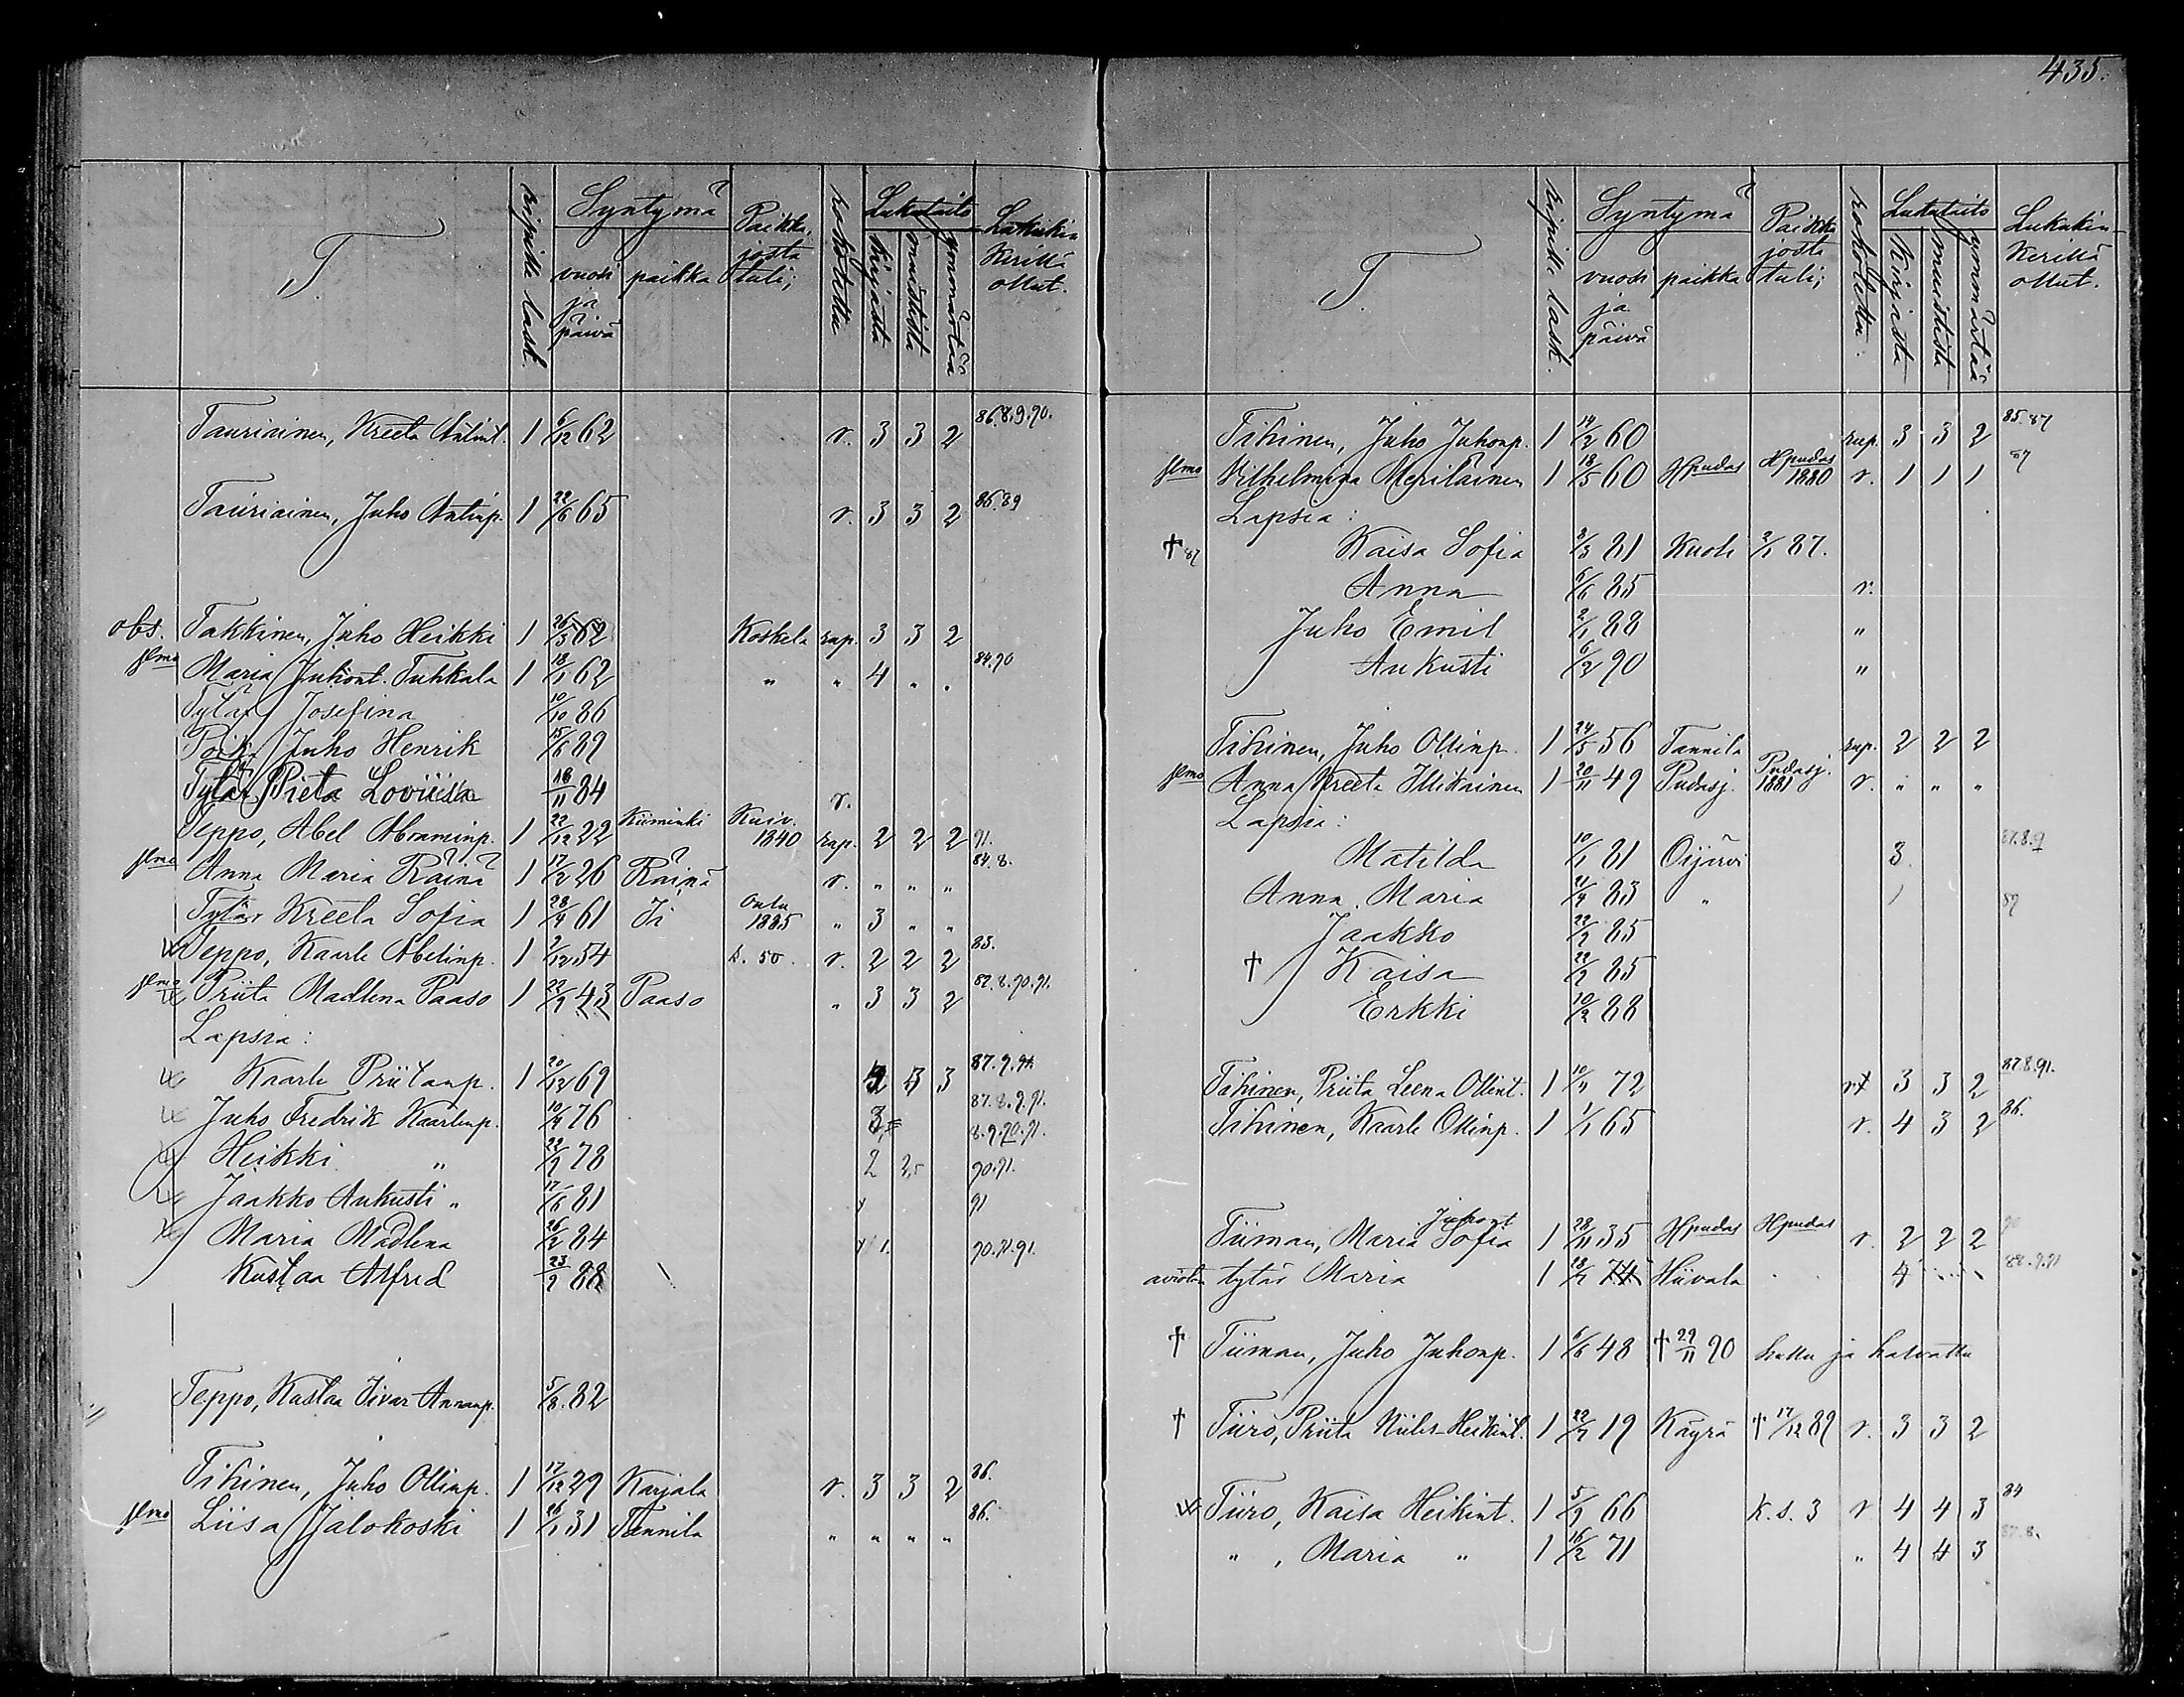 435.
T
ripille lask.
Syntymä
vuosi ja päivä
paikka
Paikka, josta tuli;
rokotettu
Lukutaito
kirjasta
muistista
ymmärtää
Lukukinkerillä ollut.
Tauriainen, Kreeta Antint. 1 6/12 62 v. 3 3 2 86.8.9.90.
Tauriainen, Juho Antinp. 1 22/6 65 v. 3 3 2 86.89
obs. Takkinen, Juho Heikki 1 26/5 62 Koskela rup. 3 3 2
Maria Juhont. Tuhkala 1 18/1 62 " " 4 " " 84.90
Tytär Josefina 10/10 86
Poika Juho Henrik 15/6 89
Tytär Pieta Loviisa 16/11 84 v.
Teppo, Abel Abraminp. 1 22/12 22 Kiiminki Kuiv. 1840 rup. 2 2 2 91.
Anna Maria Räinä 1 17/2 26 Räinä v. " " " 84.8.
Tytär Kreeta Sofia 1 28/4 61 Ii Oulu 1885 " 3 " "
Teppo, Kaarle Abelinp. 1 2/12 54 s. 50. v. 2 2 2 83.
Priita Madlena Paaso 1 22/9 43 Paaso " 3 3 2 87.8.90.91.
Lapsia:
Kaarle Priitanp. 1 20/12 69 3 3 87.9.91.
Juho Fredrik Kaarlenp. 10/4 76 3 87.8.9.91.
8.9.90.91.
Heikki " 22/9 78 2 90.91.
Jaakko Aukusti " 17/6 81 91
Maria Madlena 26/2 84 90.91.
Kustaa Alfred 23/9 88
Teppo, Kustaa Iivar Annanp. 5/8 82
Tihinen, Juho Ollinp. 1 17/12 29 Karjala v. 3 3 2 86.
Liisa Jalokoski 1 26/1 31 Tannila " " " " 86.
T.
ripille lask.
Syntymä
vuosi ja päivä
paikka
Paikka josta tuli;
rokotettu.
Lukutaito
kirjasta
muistista
ymmärtää
Lukukinkerillä ollut.
Tihinen, Juho Juhonp. 1 14/2 60 rup. 3 3 2 85.87
Vilhelmina Meriläinen 1 18/5 60 Hpudas Hpudas 1880 v. 1 1 1 87
Lapsia:
† 87 Kaisa Sofia 8/3 81 Kuoli 2/1 87.
Anna 6/6 85 v.
Juho Emil 2/1 88 "
Aukusti 6/2 90 "
Tihinen, Juho Ollinp. 1 24/5 56 Tannila rup. 2 2 2
Anna Kreeta Illikainen 1 20/11 49 Pudasj. Pudasj. 1881 v. " " "
Lapsia:
Matilda 10/1 81 Oijärvi 3. 87.8.9
Anna Maria 21/4 83 " 87
Jaakko 22/9 85
† Kaisa 22/9 85
Erkki 10/2 88
Tihinen, Priita Leena Ollint. 1 10/11 72 3 3 2 87.8.91.
Tihinen, Kaarle Ollinp. 1 1/1 65 v. 4 3 2 86.
Tiiman, Maria Juhont Sofia 1 28/11 35 Hpudas Hpudas v. 2 2 2 90
tytär Maria 1 18/7 74 Hiivala 4 88.9.91
† Tiiman, Juho Juhonp. 1 6/6 48 † 29/11 90
† Tiiro, Priita Heikint. 1 22/7 19 Käyrä † 17/12 89 v. 3 3 2
Tiiro, Kaisa Heikint. 1 5/9 66 K.s. 3 v 4 4 3 84
" , Maria " 1 16/2 71 " 4 4 3 87.8.